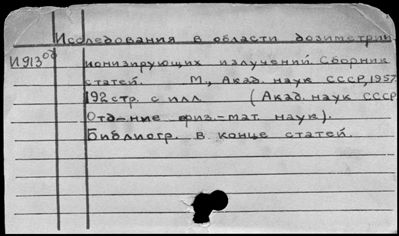 Исследования в области дозиметрии
И913об ионизирующих излучений. Сборник
статей. М., Акад. наук СССР, 1957.
192 стр. с илл (Акад. наук СССР
Отд-ние физ.-мат. наук).
Библиогр. в конце статей.